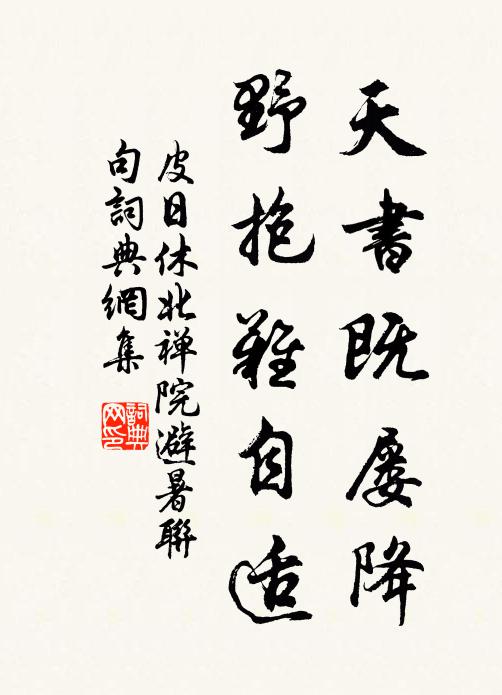 天書既屡降
野抱難自适
皮日休北禅院避暑聯
句詞典網集
詞典
网印